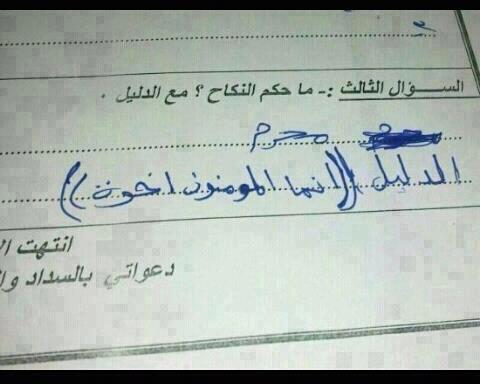 السـؤال الثالث :- ما حكم النكاح ؟ مع الدليل .
محرم
الدليل ((انما المومنون اخوة))
انتهت ال
دعواتي بالسداد وا